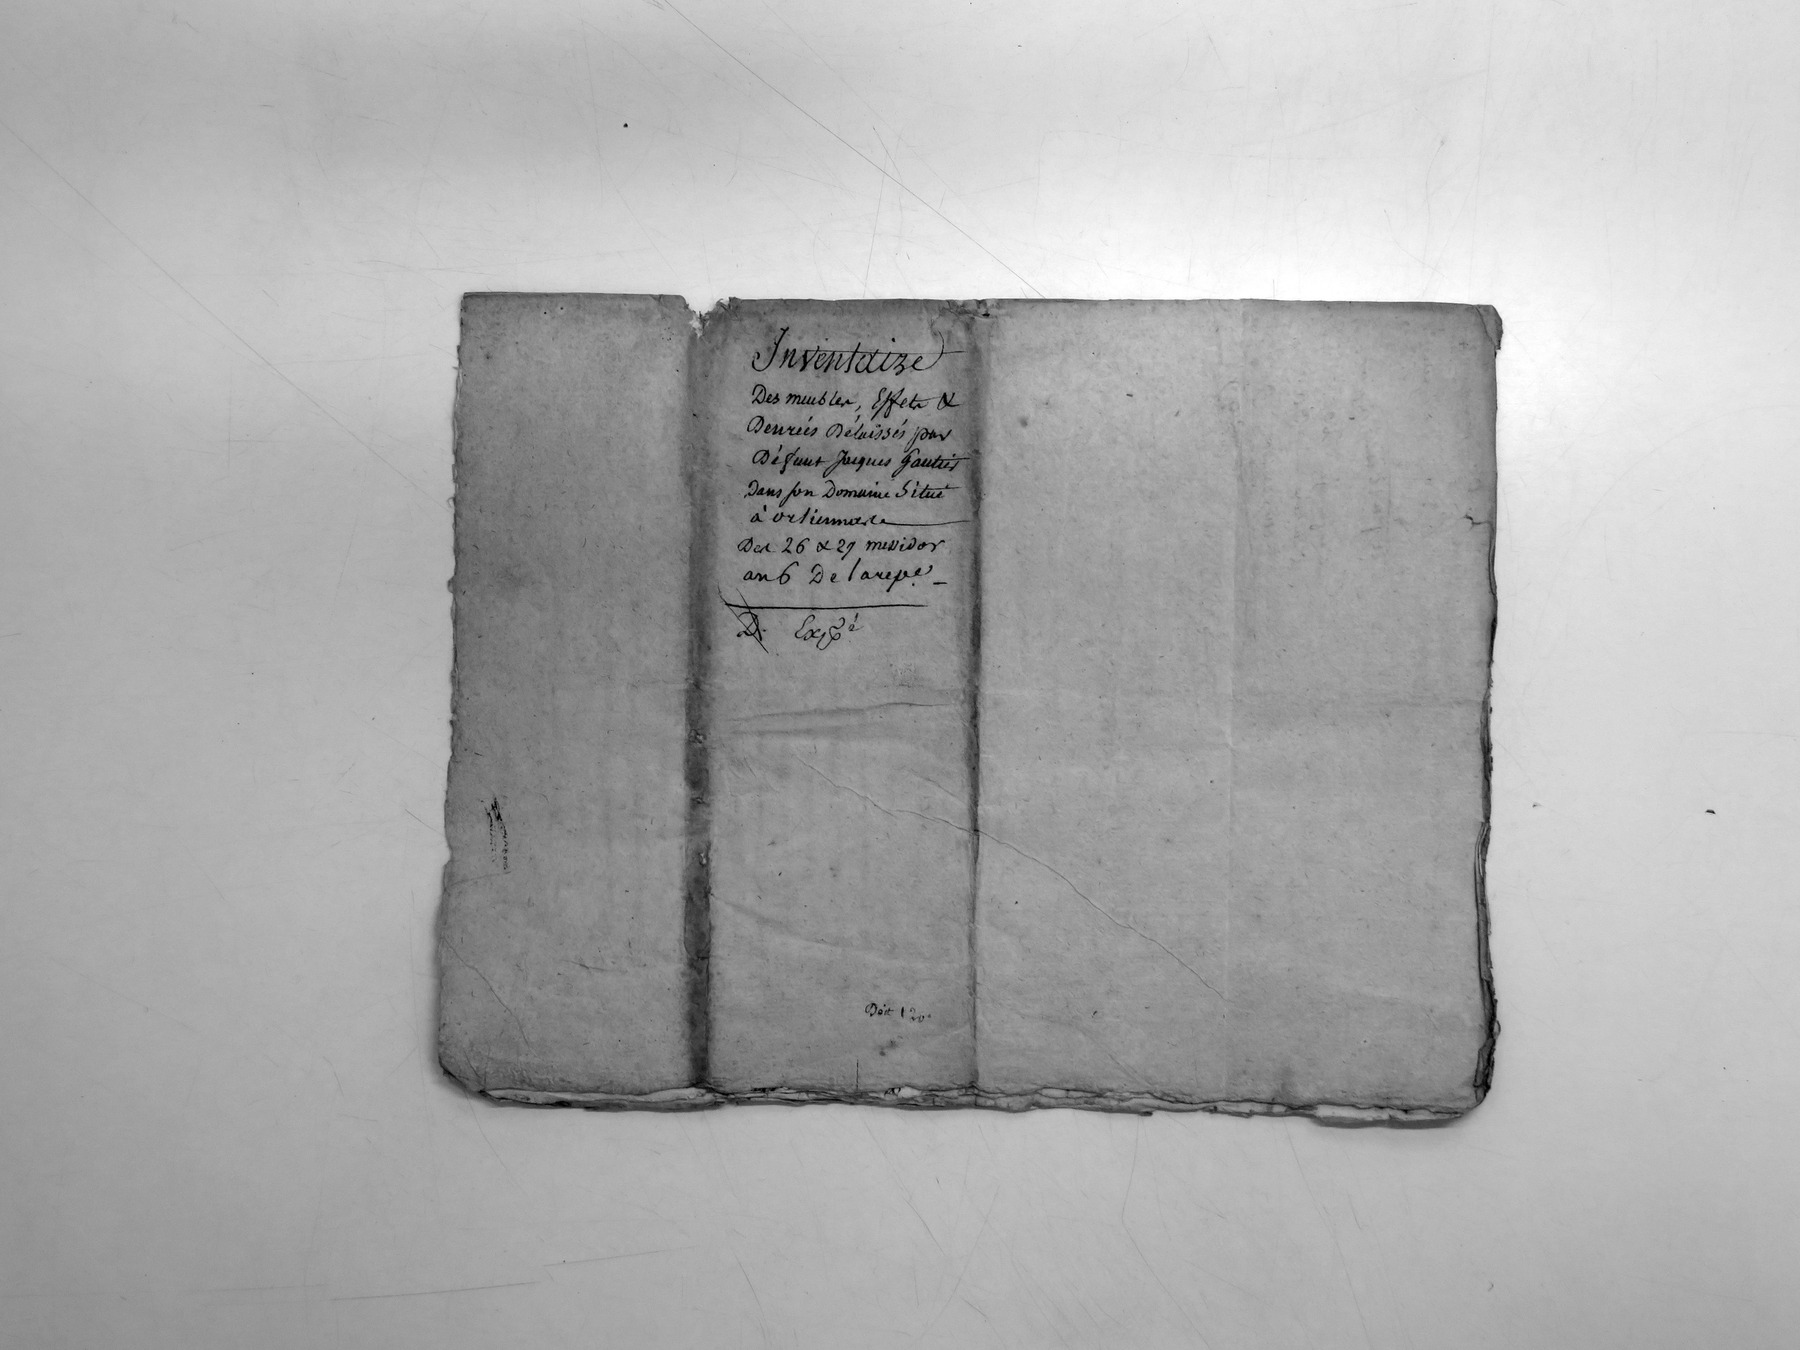 Inventaire
Des meubles, Effets &
Denrées Délaissés par
Défunt Jacques Gautier
Dans son Domaine Situé
à
Des 26 & 29 messidor
an 6 De la repe.
D. Expé
Doit 120